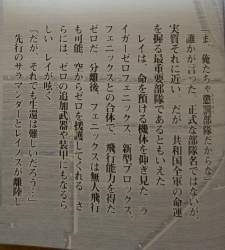 「ま、俺たちゃ懲罰部隊だからな」
誰かが言った。正式な部隊名ではないが
実質それに近い。だが、共和国全軍の命運
を握る最重要部隊であるともいえた。
　レイは、命を預ける機体を仰ぎ見た。ラ
イガーゼロフェニックス。新型ブロックス、
フェニックスとの合体で、飛行能力を得た
ゼロだ。分離後、フェニックスは無人飛行
も可能。空からゼロを援護してくれる。さ
らには、ゼロの追加武器や装甲にもなるら
しい。レイが呟く。
「だが、それでも生還は難しいだろう…」
　先行のサラマンダーとレイノスが離陸し